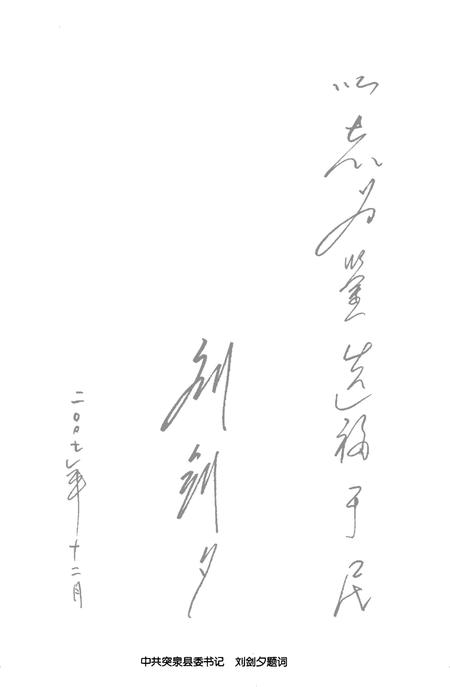 以志为鉴造福于民
刘剑夕
二00七年十二月
中共突泉县委书记 刘剑夕题词